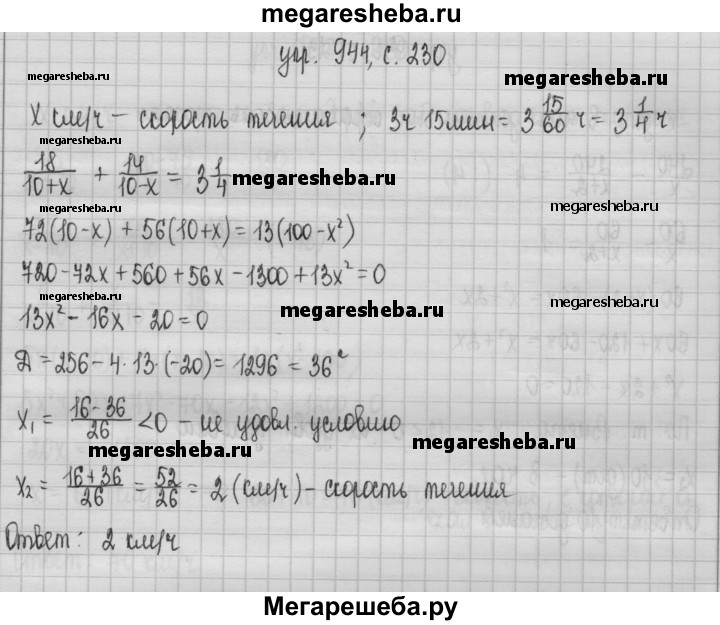 megaresheba.ru
упр. 944, с. 230
megaresheba.ru megaresheba.ru
X км/ч – скорость течения ; 3ч 15мин = 3 15/60 ч = 3 1/4 ч
18/(10+x) + 14/(10-x) = 3 1/4
megaresheba.ru
megaresheba.ru
72(10-x) + 56(10+x) = 13(100-x²)
720-72x+560+56x-1300+13x²=0
megaresheba.ru megaresheba.ru
13x²-16x-20=0
megaresheba.ru
Д = 256-4·13·(-20) = 1296 = 36²
megaresheba.ru
x₁ = (16-36)/26 <0 – не удовл. условию
megaresheba.ru
x₂ = (16+36)/26 = 52/26 = 2 (км/ч) – скорость течения
Ответ: 2 км/ч
megaresheba.ru
Мегарешеба.ру